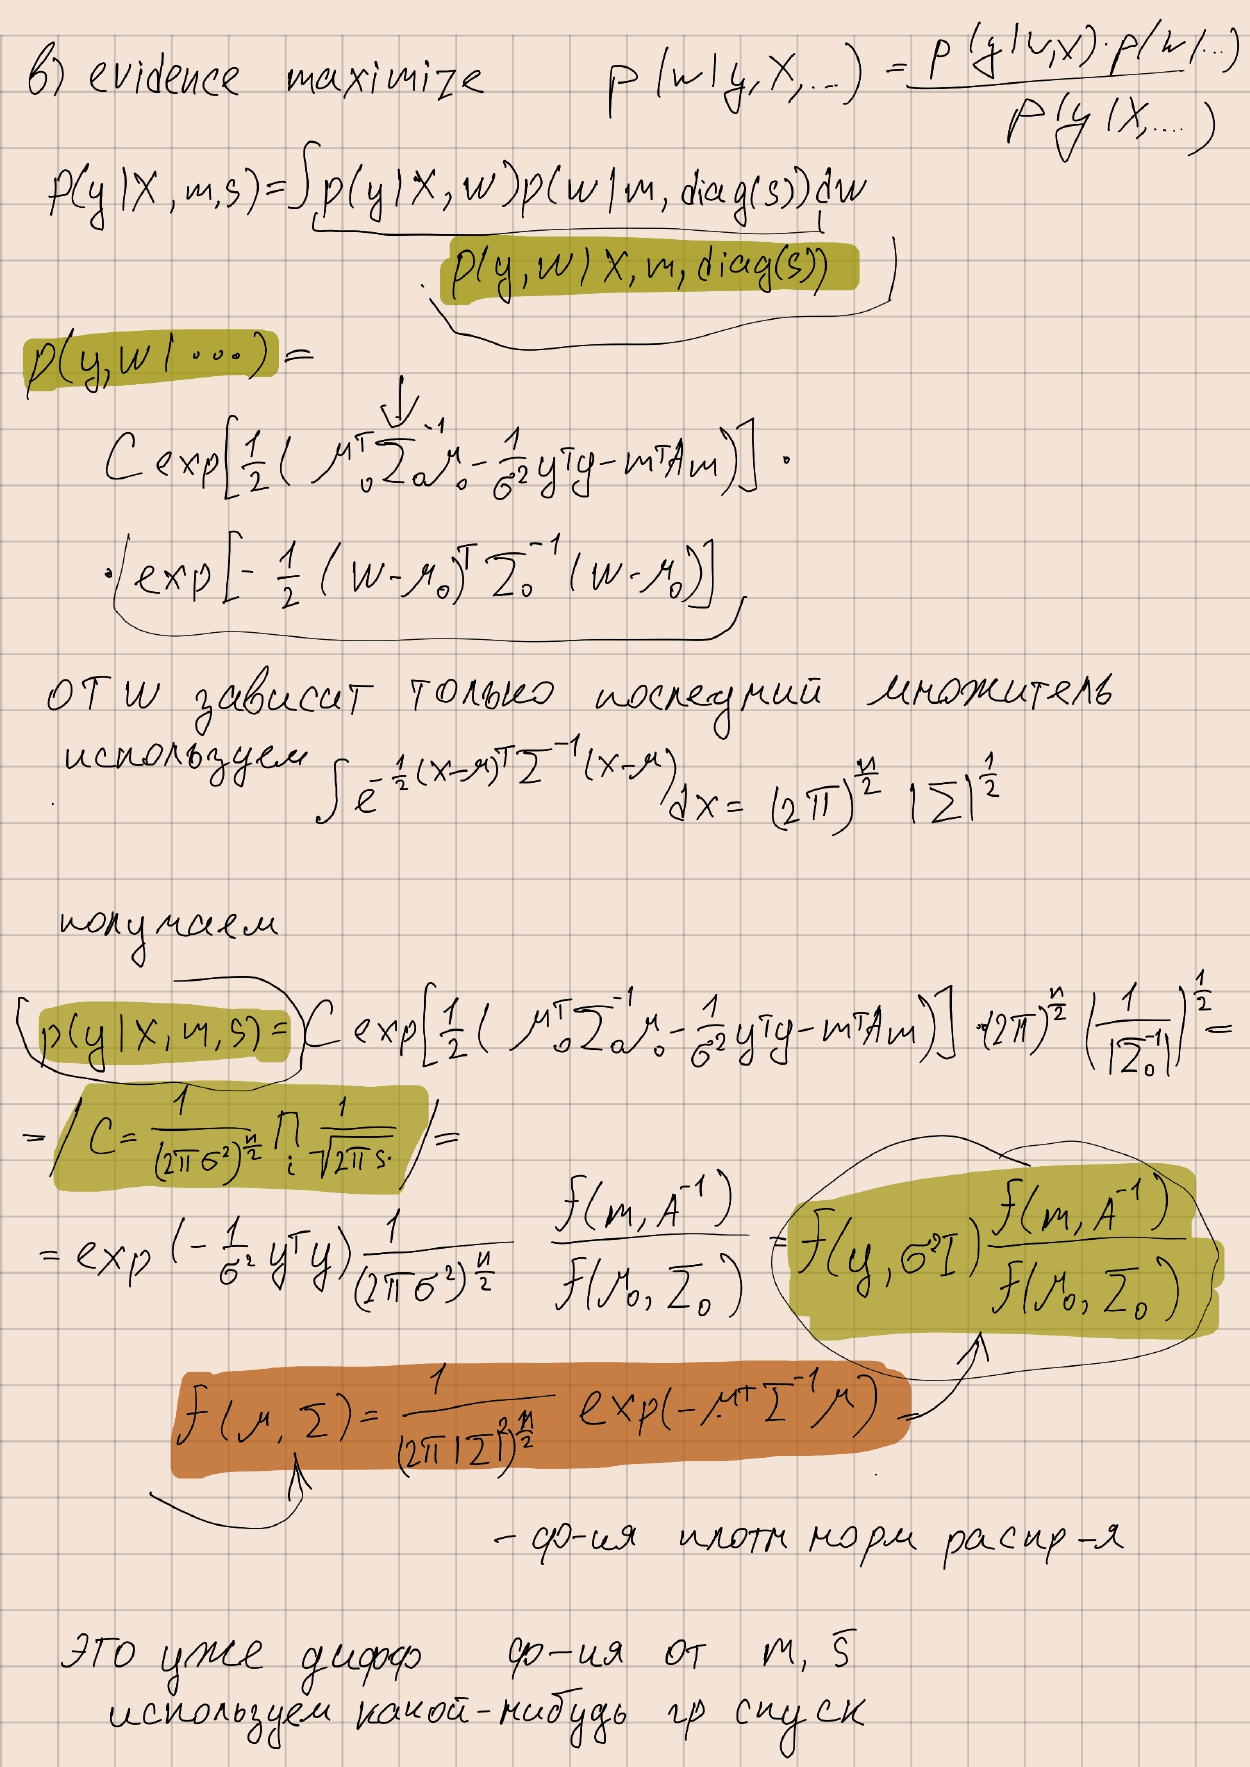 в) evidence maximize p(w|y,X,...) = p(y|w,X)·p(w|...) / p(y|X,....)
p(y|X,m,s)=∫p(y|X,w)p(w|m,diag(s))dw
p(y,w|X,m,diag(s))
p(y,w|...)=
C exp[1/2( μ₀ᵀΣ₀⁻¹μ₀ - 1/σ² yᵀy - mᵀAm)] ·
· exp[- 1/2 (w-μ₀)ᵀ Σ₀⁻¹ (w-μ₀)]
от w зависит только последний множитель
используем ∫ e^{-1/2(x-μ)ᵀΣ⁻¹(x-μ)} dx = (2π)^{n/2} |Σ|^{1/2}
получаем
p(y|X,m,s)= C exp[1/2( μ₀ᵀΣ₀⁻¹μ₀ - 1/σ² yᵀy - mᵀAm)] ·(2π)^{n/2} (1/|Σ₀⁻¹|)^{1/2} =
= / C = 1/(2πσ²)^{n/2} ∏ᵢ 1/√(2πsᵢ) / =
= exp(-1/σ² yᵀy) 1/(2πσ²)^{n/2} f(m,A⁻¹)/f(μ₀,Σ₀) = f(y,σ²I) f(m,A⁻¹)/f(μ₀,Σ₀)
f(μ,Σ) = 1/(2π|Σ|²)^{n/2} exp(-μᵀΣ⁻¹μ)
- ф-ия плотн норм распр-я
это уже дифф ф-ия от m, s̄
используем какой-нибудь гр спуск